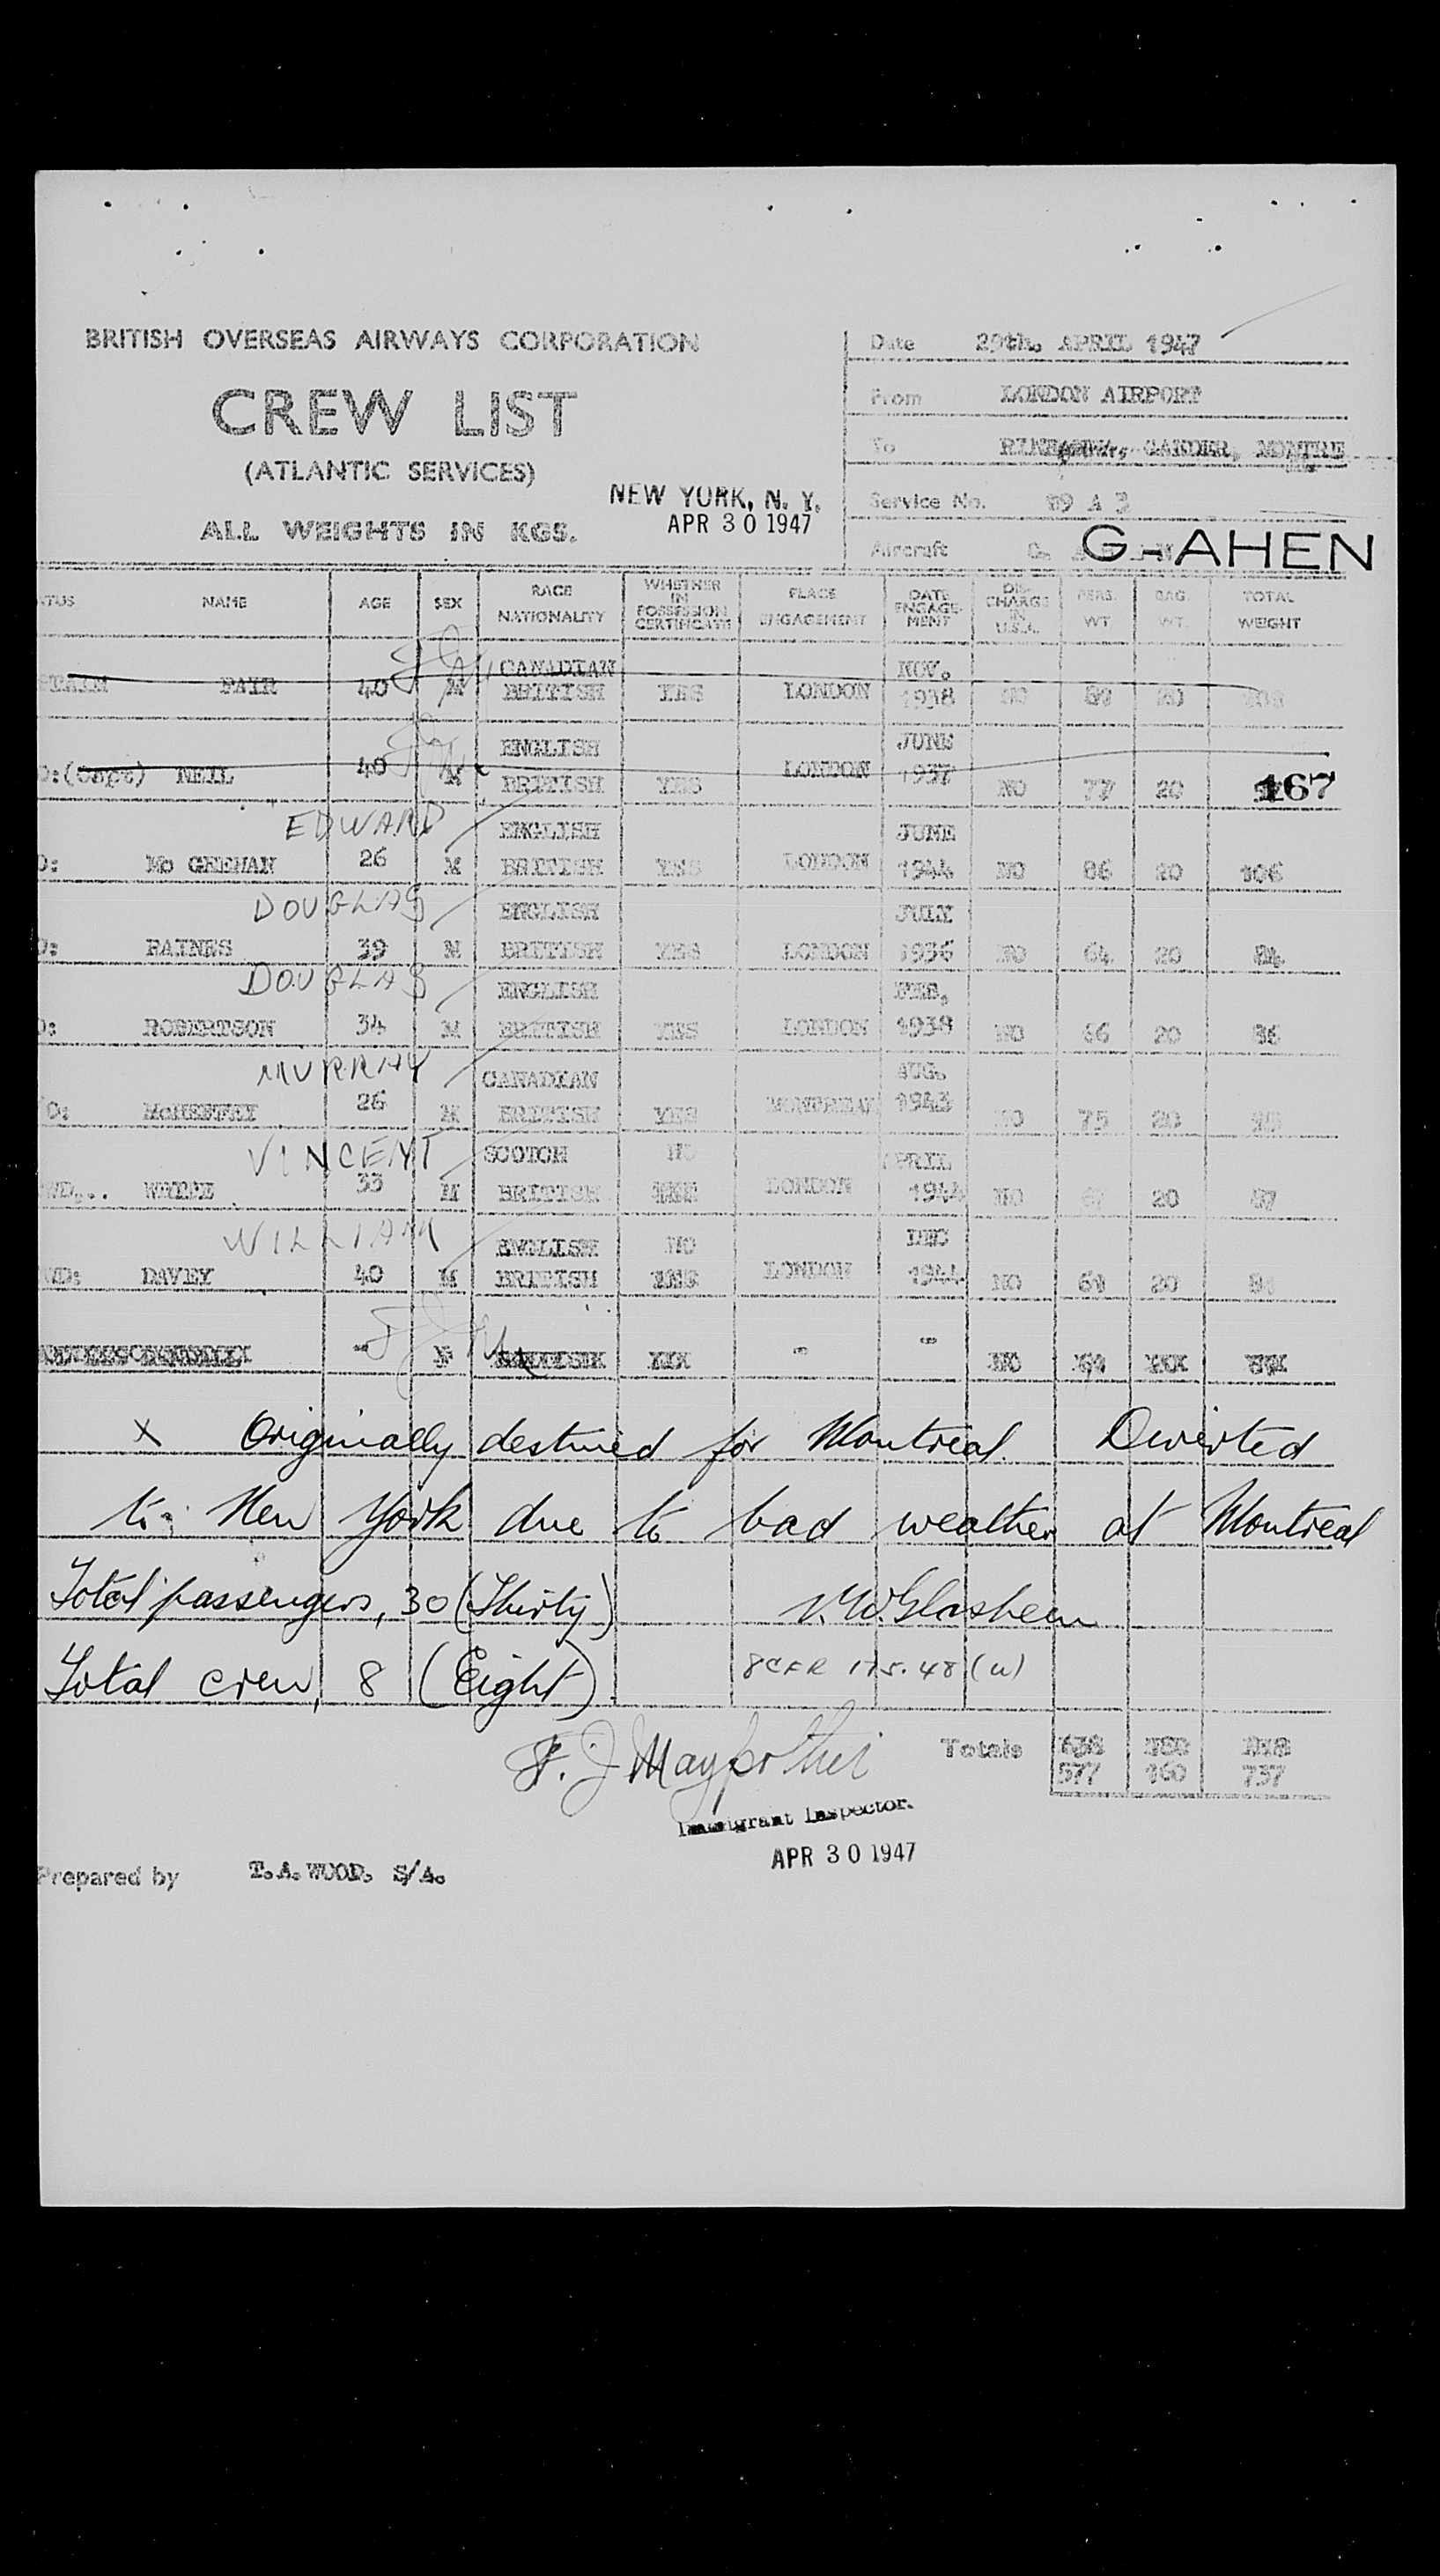 BRITISH OVERSEAS AIRWAYS CORPORATION
CREW LIST
(ATLANTIC SERVICES)
ALL WEIGHTS IN KGS.
NEW YORK, N. Y.
APR 30 1947
Date 29th. APRIL 1947
From LONDON AIRPORT
To GANDER, MONTRE
Service No. 89 A 3
Aircraft G-AHEN
TUS NAME AGE SEX RACE NATIONALITY WHETHER IN POSSESSION CERTIFICATE PLACE ENGAGEMENT DATE ENGAGE-MENT DIS-CHARGE IN U.S.A. PERS. WT. BAG. WT. TOTAL WEIGHT
CANADIAN NOV.
TAIN FAIR 40 M BRITISH YES LONDON 1938 NO 20
ENGLISH JUNE
O:(Capt) NEIL 40 M BRITISH YES LONDON 1937 NO 77 20 167
EDWARD ENGLISH JUNE
O: Mc GEEHAN 26 M BRITISH YES LONDON 1944 NO 86 20 106
DOUGLAS ENGLISH JULY
O: RAINES 39 M BRITISH YES LONDON 1936 NO 64 20 84
DOUGLAS ENGLISH FEB.
O: ROBERTSON 34 M BRITISH YES LONDON 1938 NO 66 20 86
MURRAY CANADIAN AUG.
O: 26 M BRITISH YES MONTREAL 1943 NO 75 20 95
VINCENT SCOTCH NO APRIL
WD... WHITE 33 M BRITISH LONDON 1944 NO 20 87
WILLIAM ENGLISH NO DEC
WD: DAVEY 40 M BRITISH LONDON 1944 NO 20
- F BRITISH - - NO
x Originally destined for Montreal. Diverted
to: New York due to bad weather at Montreal
Total passengers, 30 (Thirty)
Total crew, 8 (Eight)
8CFR 175.48 (u)
Totals 638
577 160 737
Immigrant Inspector.
APR 30 1947
Prepared by T.A. WOOD. S/A.